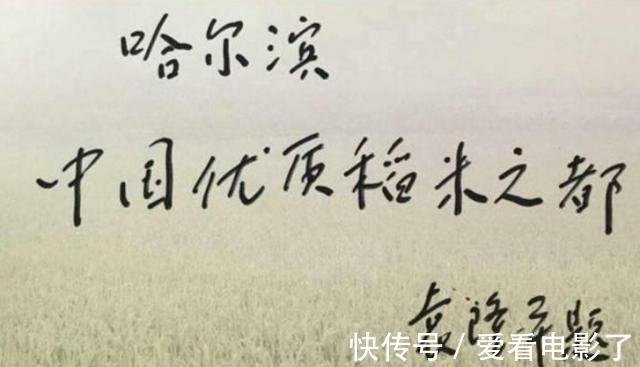 哈尔滨
中国优质稻米之都
袁隆平题
快传号 / 爱看电影了